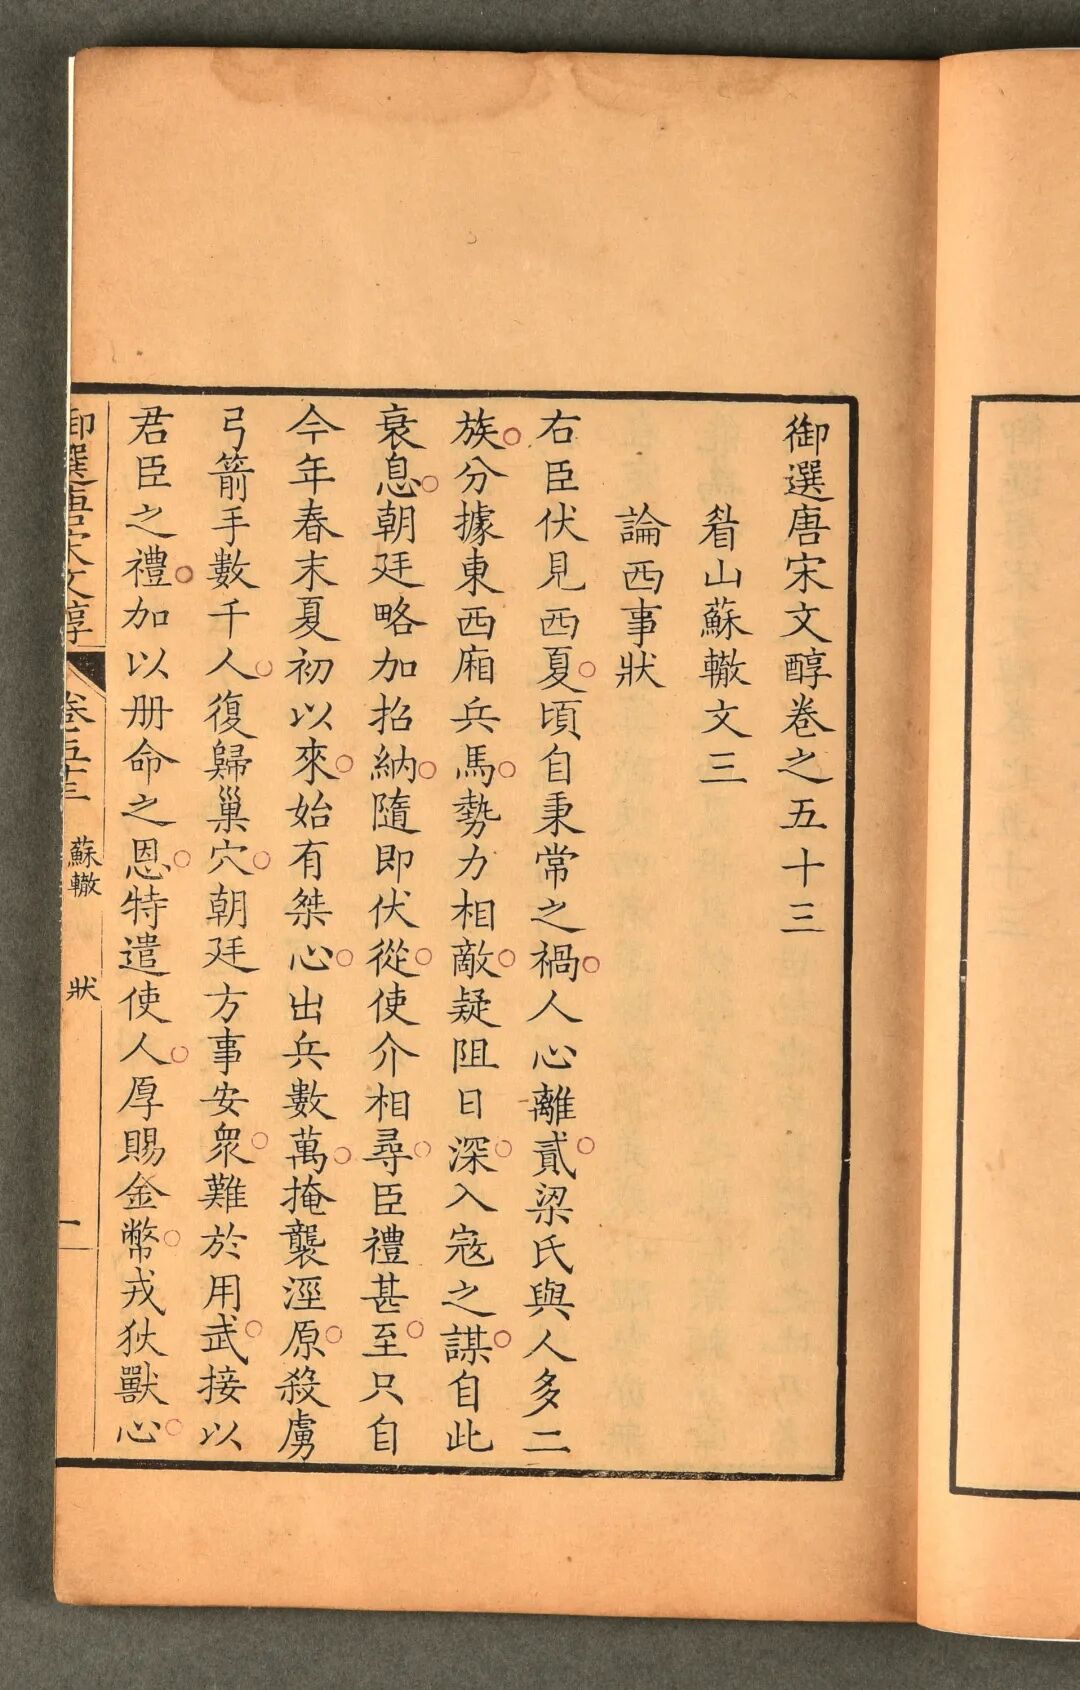 御選唐宋文醇卷之五十三
眉山蘇轍文三
論西事狀
右臣伏見西夏頃自秉常之禍人心離貳梁氏與人多二
族分據東西廂兵馬勢力相敵疑阻日深入寇之謀自此
衰息朝廷略加招納隨即伏從使介相尋臣禮甚至只自
今年春末夏初以來始有桀心出兵數萬掩襲涇原殺虜
弓箭手數千人復歸巢穴朝廷方事安衆難於用武接以
君臣之禮加以册命之恩特遣使人厚賜金幣戎狄獸心
御選唐宋文醇 卷五十三 蘇轍 狀 一